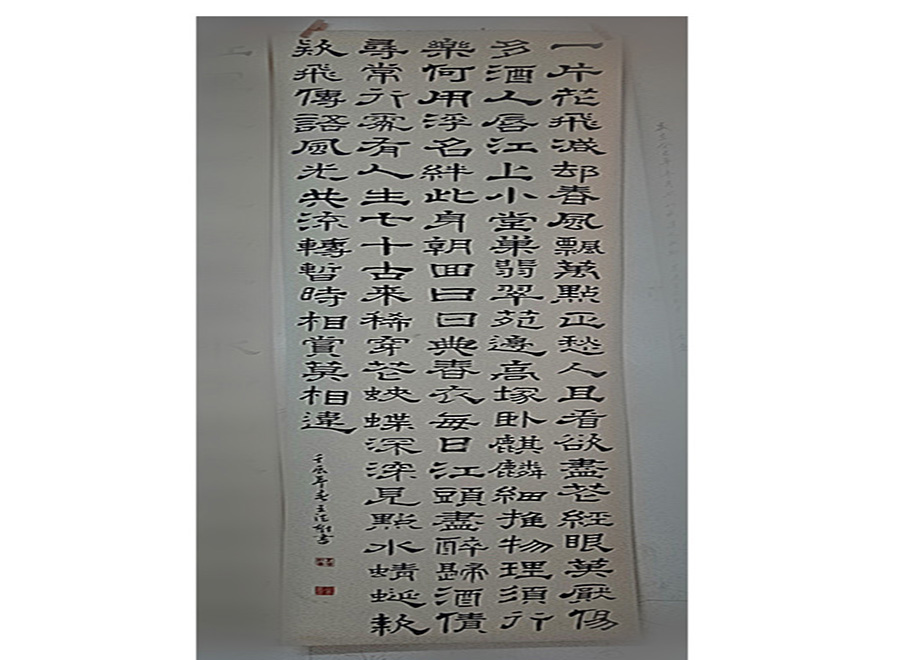 一片花飛減却春風飄萬點正愁人且看欲盡花經眼莫厭傷
多酒人唇江上小堂巢翡翠苑邊高塚卧麒麟細推物理須行
樂何用浮名絆此身朝囬日日典春衣每日江頭盡醉歸酒債
尋常行處有人生七十古來稀穿花蛺蝶深深見點水蜻蜓款
款飛傳語風光共流轉暫時相賞莫相違
壬辰年春